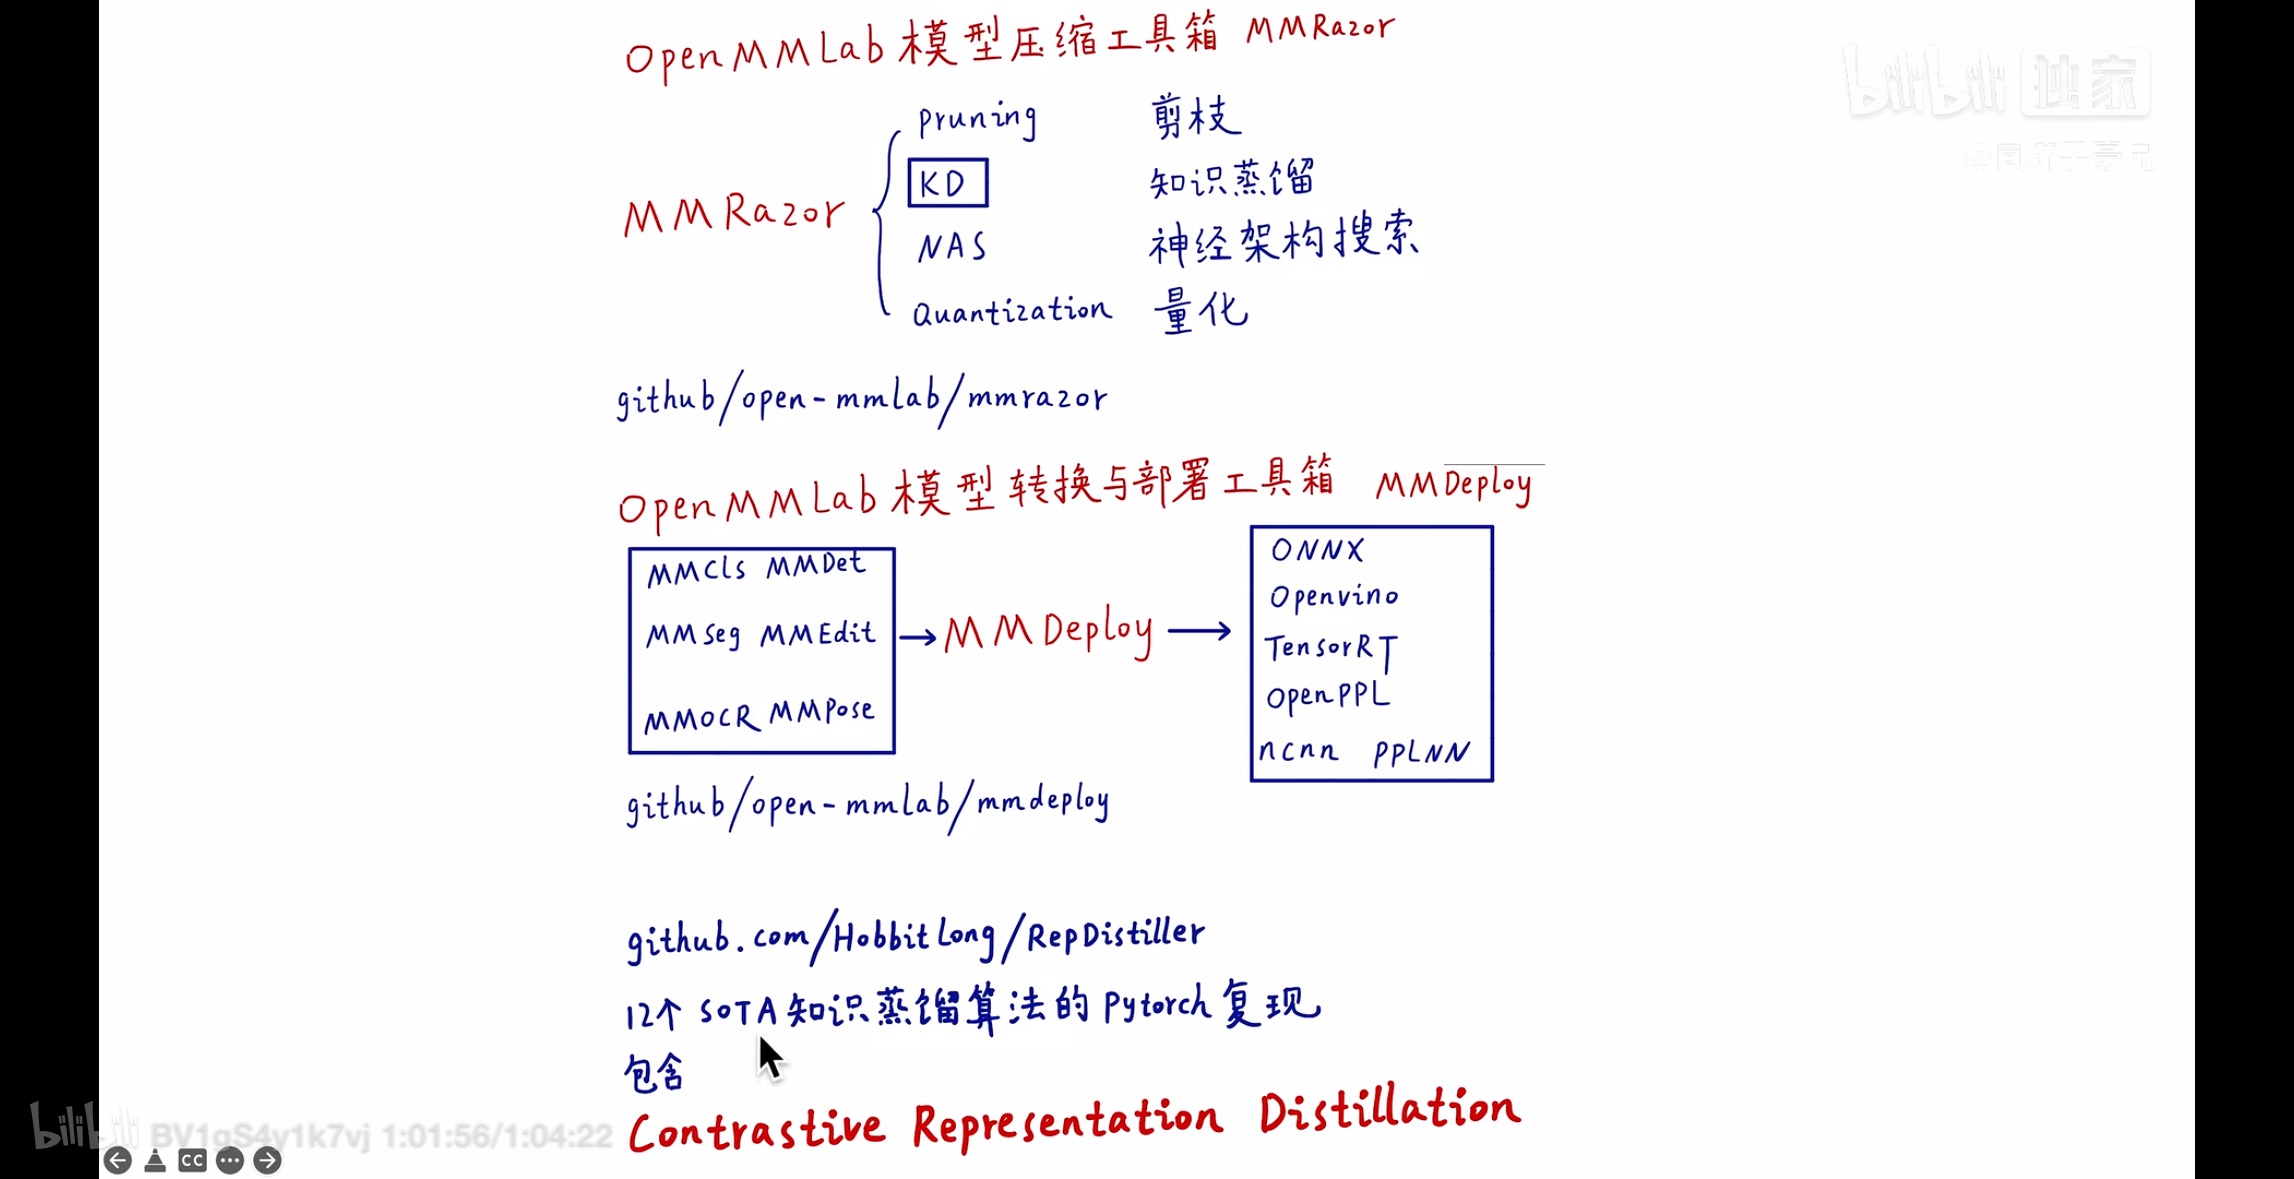 OpenMMLab 模型压缩工具箱 MMRazor
bilibili 独家
Pruning 剪枝
KD 知识蒸馏
MMRazor
NAS 神经架构搜索
Quantization 量化
github/open-mmlab/mmrazor
OpenMMLab 模型转换与部署工具箱 MMDeploy
MMCls MMDet
MMSeg MMEdit
MMOCR MMPose
MMDeploy
ONNX
Openvino
TensorRT
OpenPPL
ncnn PPLNN
github/open-mmlab/mmdeploy
github.com/HobbitLong/RepDistiller
12个 SOTA知识蒸馏算法的Pytorch复现
包含
Contrastive Representation Distillation
bilibili BV1gS4y1k7vj 1:01:56/1:04:22
CC